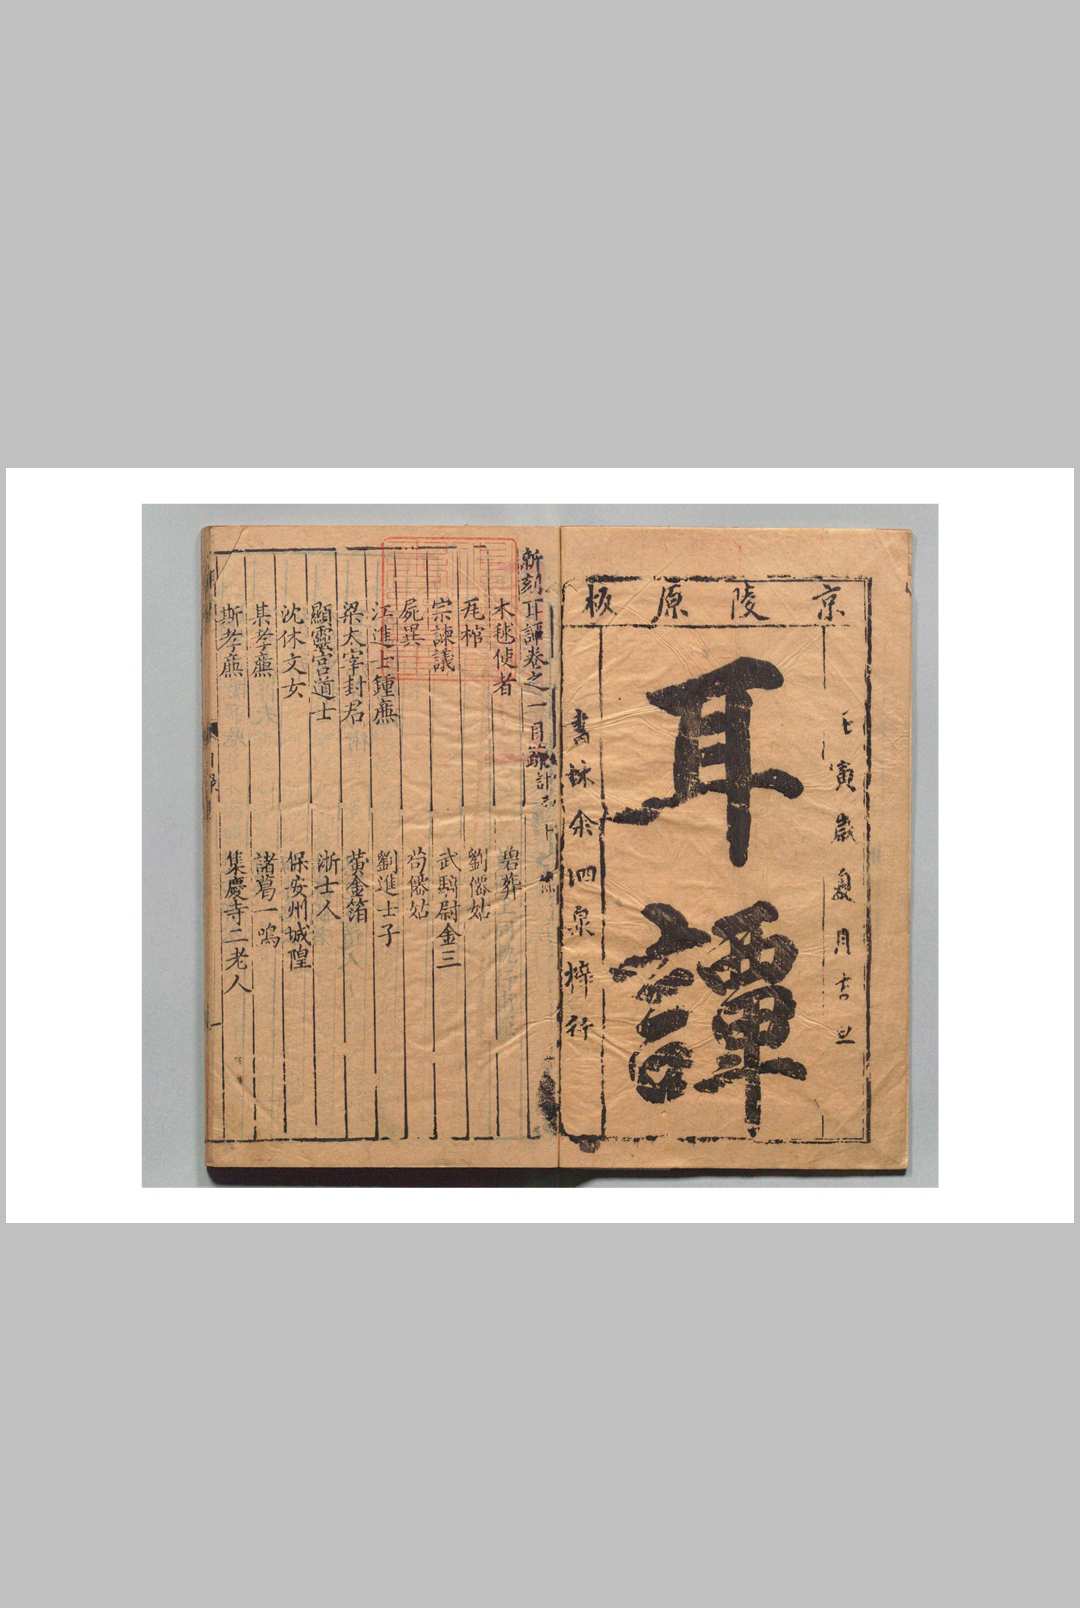 京陵原板
壬寅歲夏月吉旦
耳譚
書林余泗泉梓行
新刻耳譚卷之一目錄
木毬使者
碧葬
瓦棺
劉僊姑
宗諫議
武騎尉金三
屍異
苟僊姑
江進士鍾廡
劉進士子
梁太宰封君
黃金箔
顯靈宮道士
浙士人
沈休文女
保安州城隍
某孝廉
諸葛一鳴
斯孝廉
集慶寺二老人